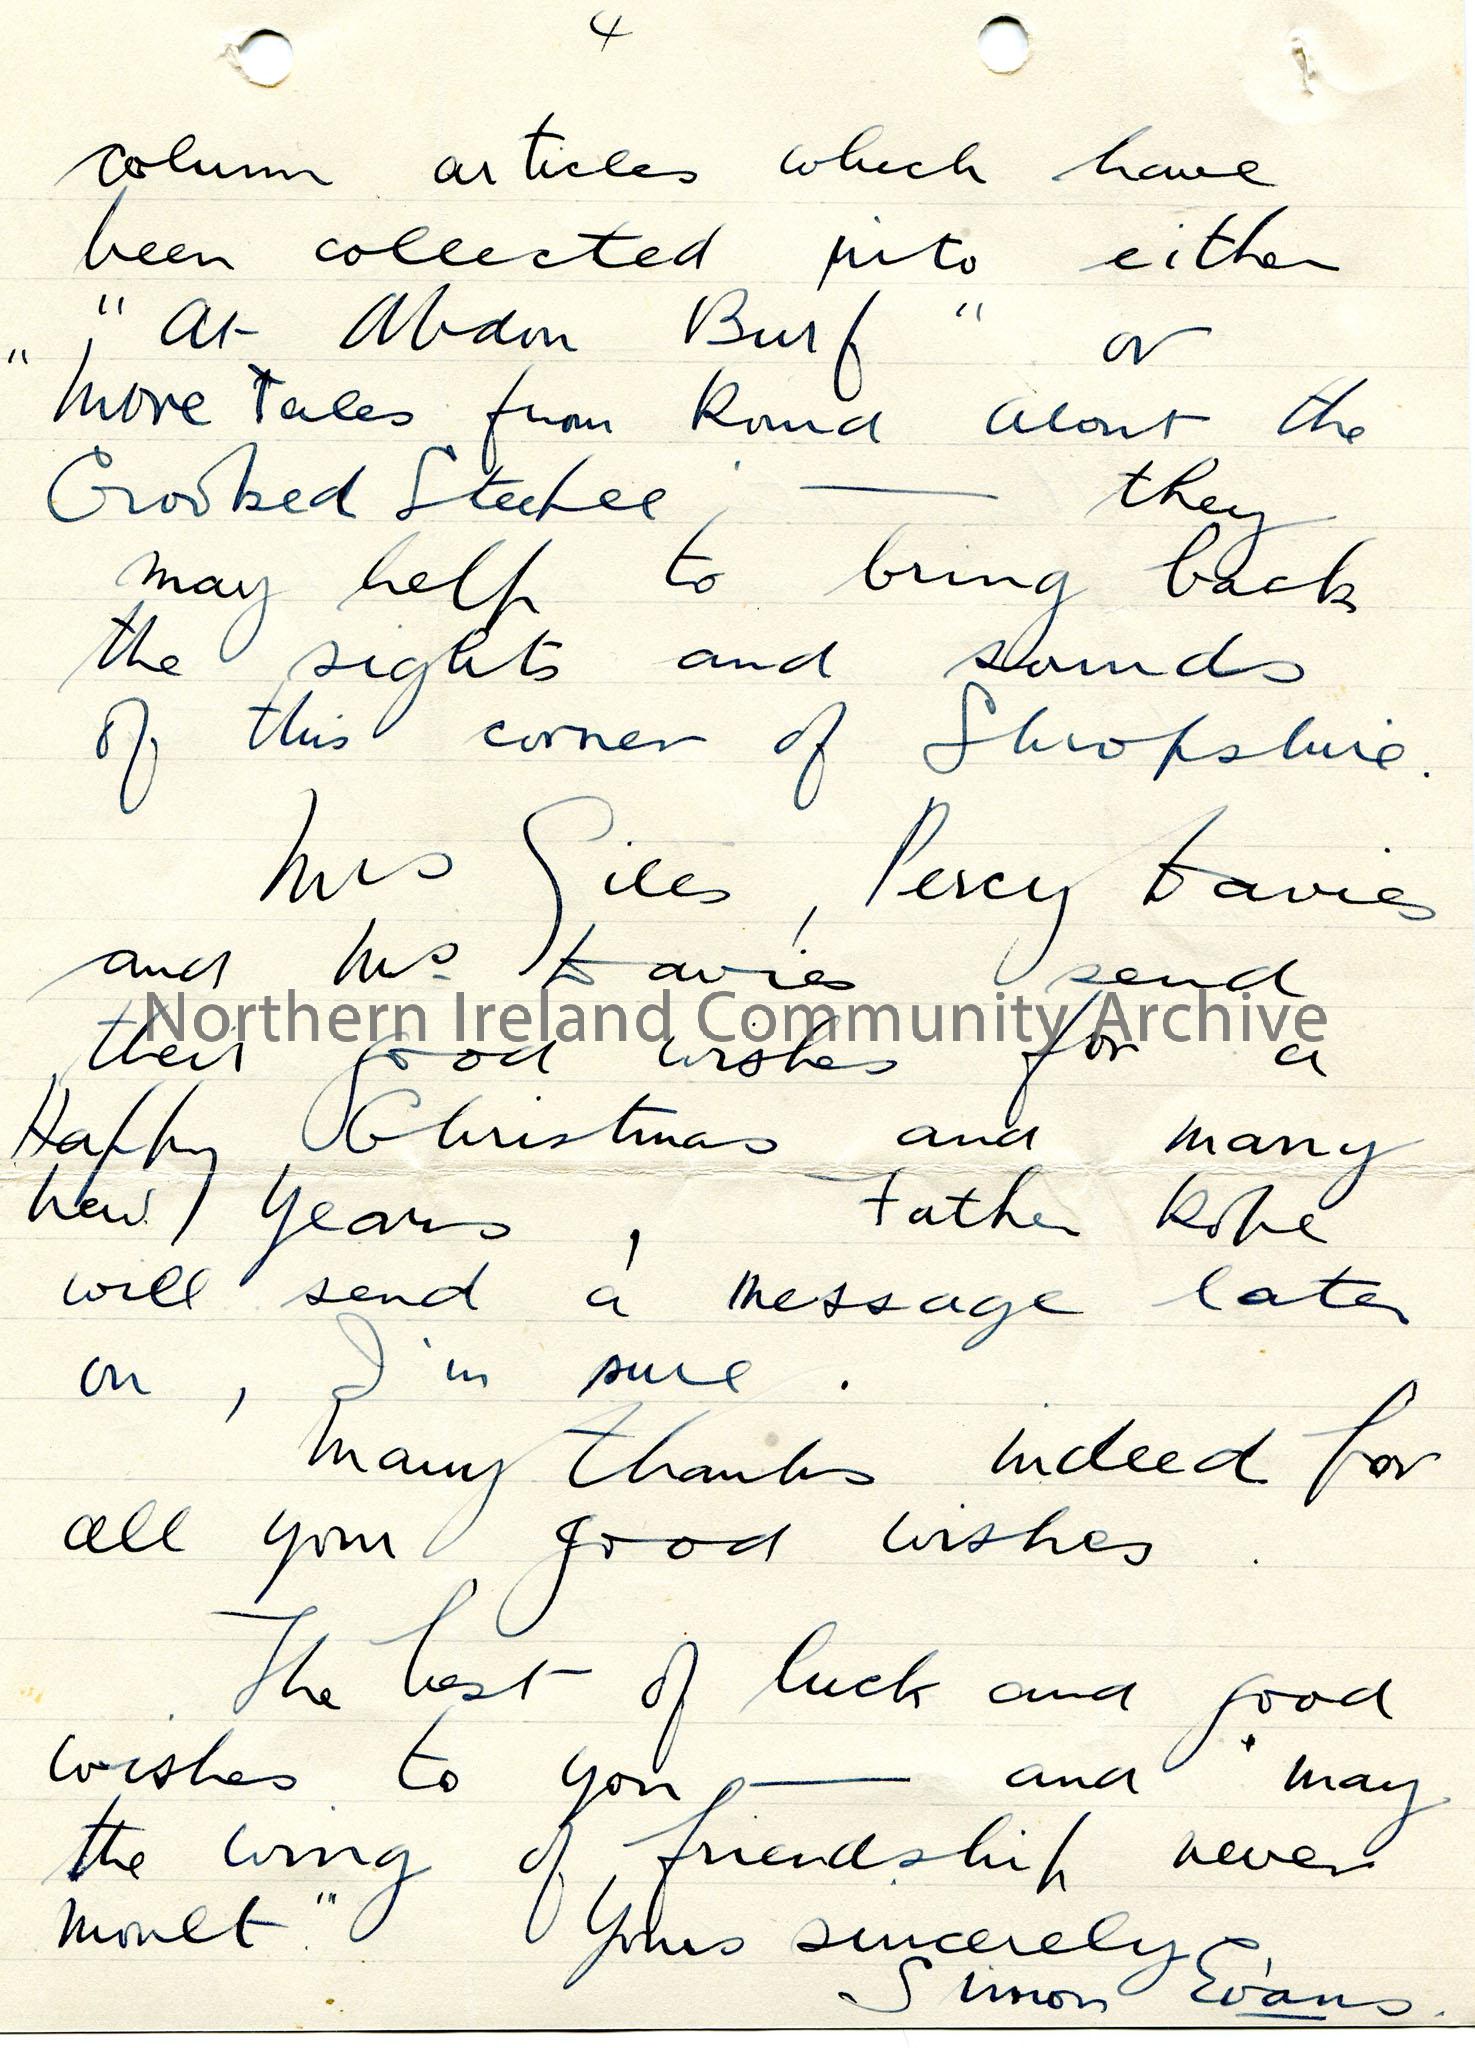 4
column articles which have
been collected into either
"At Abdon Burf" or
"More Tales from Round about the
Crooked Steeple' — they
may help to bring back
the sights and sounds
of this corner of Shropshire.
Mrs Giles, Percy Davies
and Mrs Davies send
Northern Ireland Community Archive
their good wishes for a
Happy Christmas and many
new years, Father Rope
will send a message later
on, I'm sure.
Many thanks indeed for
all your good wishes.
The best of luck and good
wishes to you — and "may
the wing of friendship never
moult."
Yours sincerely
Simon Evans.